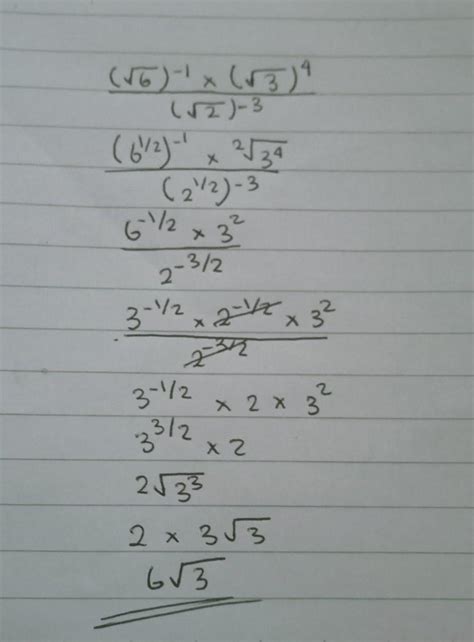 (√6)⁻¹ × (√3)⁴
(√2)⁻³
(6^1/2)⁻¹ × ²√3⁴
(2^1/2)⁻³
6^-1/2 × 3²
2^-3/2
3^-1/2 × 2^-1/2 × 3²
2^-3/2
3^-1/2 × 2 × 3²
3^3/2 × 2
2√3³
2 × 3√3
6√3